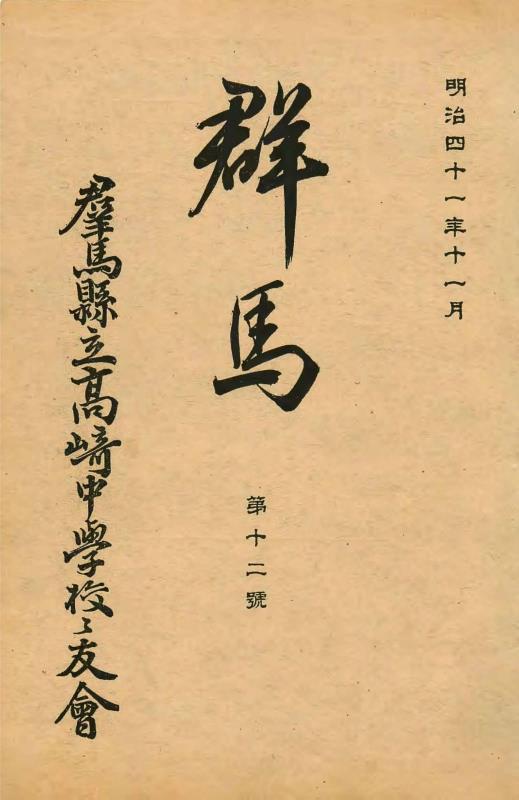 明治四十一年十一月
群馬
第十二號
羣馬縣立高崎中學校〻友會